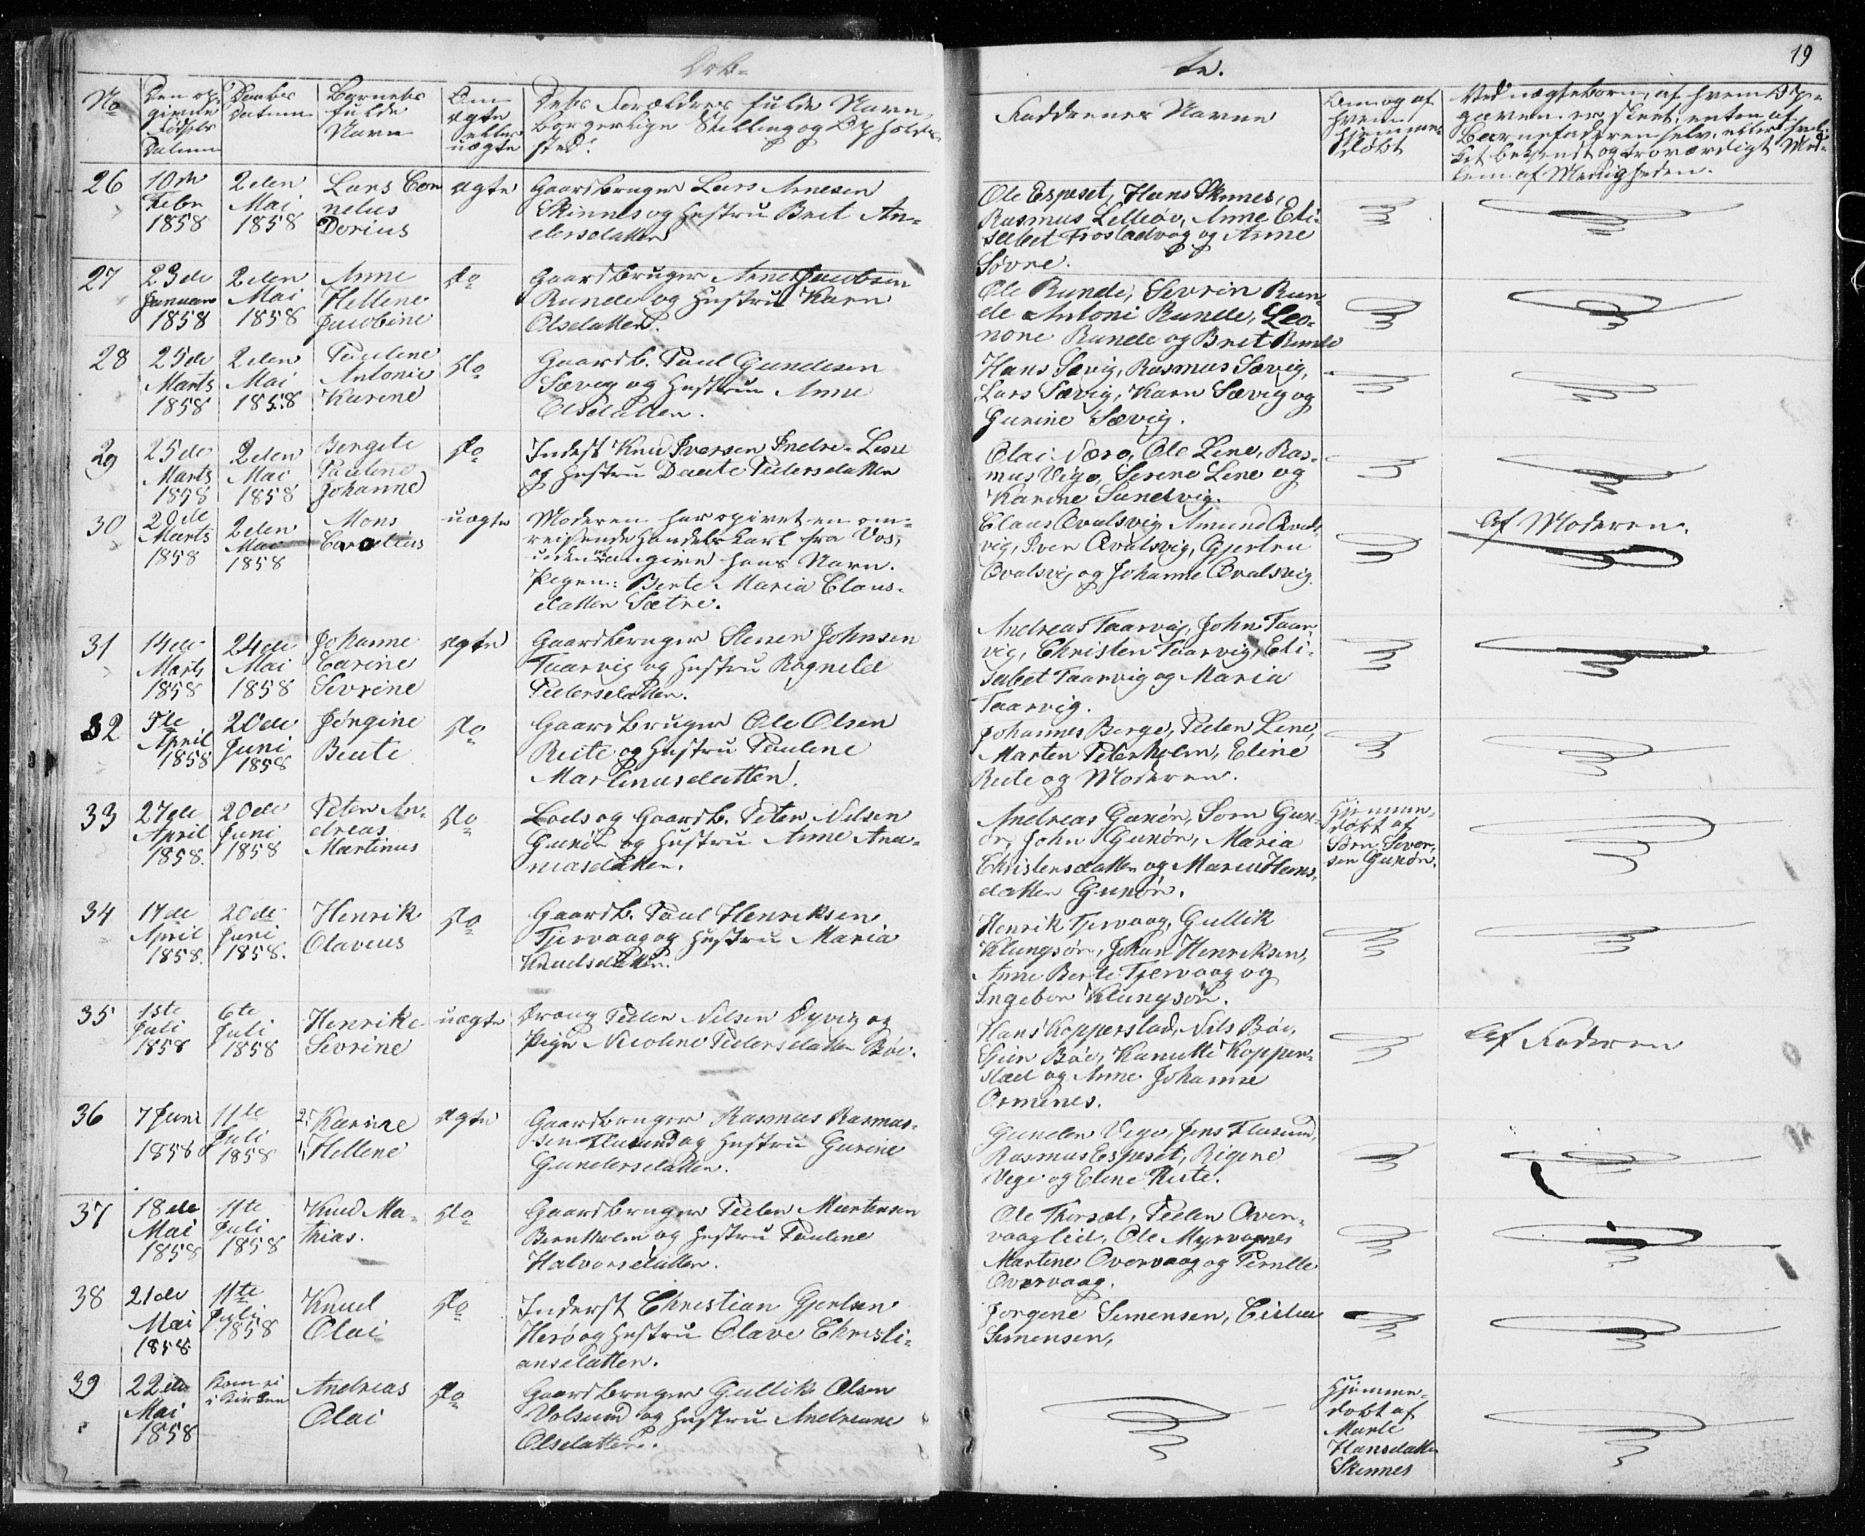 Døb-
te.
19
No
Den op-
givne
Fødsels
Datum
Daabs
Datum
Barnets
fulde
Navn
Om
ægte
eller
uægte
Dets Forældres fulde Navn,
borgerlige Stilling og Opholds-
sted.
Faddrenes Navne
Om og af
hvem
hjemme-
døbt
Ved uægtebørn, af hvem Op-
gaven er skeet; enten af
Barnefaderen selv, eller
bekjendt og troværdigt Med-
lem af Menigheden.
26
10de
Febr
1858
2den
Mai
1858
Lars Cor
nelius
Dorius
ægte
Gaardbruger Lars Arnesen
Skinnes og Hustru Brit An-
dersdatter
Ole Espeset, Hans Skinnes,
Rasmus Lilleøv, Anne Eli-
sabet Frostadvog og Anne
Søvre.
27
23de
Januar
1858
2den
Mai
1858
Anne
Hellene
Jacobine
do
Gaardbruger Arne Jacobsen
Runde og Hustru Karn
Olsdatter.
Ole Runde, Sevrin Run-
de Antoni Runde, Leo-
nore Runde og Brit Runde
28
25de
Marts
1858
2den
Mai
1858
Pauline
Antonie
Karine
do
Gaardb. Paul Gundersen
Sævig og Hustru Anne
Olsdatter.
Hans Sævig, Rasmus Sævig,
Lars Sævig, Karn Sævig og
Gurine Sævig.
29
25de
Marts
1858
2den
Mai
1858
Bergite
Pauline
Johanne
do
Inderst Knud Iversen Indre-Line
og Hustru Daate Pedersdatter
Olai Nærø, Ole Line, Ras-
mus Vige, Serene Line og
Karine Sandvig.
30
20de
Marts
1858
2den
Mai
1858
Mons
Cornelius
uægte
Moderen har opgivet en om-
reisende Handelskarl fra Vos,
uden at angive hans Navn.
Pigen: Berte Maria Claus-
datter Sætre.
Claus Qvalsvig, Amund Qvals-
vig, Iver Qvalsvig, Gjertru
Qvalsvig og Johanne Qvalsvig.
Af Moderen.
31
14de
Marts
1858
24de
Mai
1858
Johanne
Carine
Sevrine
ægte
Gaardbruger Stener Johnsen
Taarvig og Hustru Ragnild
Pedersdatter.
Andreas Taarvig, John Taar-
vig, Christen Taarvig, Eli-
sabet Taarvig og Maria
Taarvig.
32
5te
April
1858
20de
Juni
1858
Jørgine
Beate
do
Gaardbruger Ole Olsen
Reite og Hustru Pauline
Martinusdatter.
Johannes Berge, Peder Line,
Marten Peterholm, Eline
Reite og Moderen.
33
27de
April
1858.
20de
Juni
1858
Peter An-
dreas
Martinus
do
Lods og Gaardb. Peter Nilsen
Gurør og Hustru Anne Ana-
niasdatter.
Andreas Gurør, Sørn Gur-
ør, John Gurør, Maria
Christensdatter og Maria Hans-
datter Gurør.
Hjemme-
døbt af
Sørn Siver-
sen Gurør.
34
17de
April
1858.
20de
Juni
1858.
Henrik
Olavus
do
Gaardb. Paul Henriksen
Tjervaag og Hustru Maria
Knudsdatter.
Henrik Tjervaag, Gullik
Klungsør, Johan Henriksen,
Anne Berte Tjervaag og
Ingebor Klungsør.
35
1ste
Juli
1858
6te
Juli
1858
Henrike
Sevrine
uægte
Dreng Peder Nilsen Dyvig og
Pige Nicoline Pedersdatter Bøe.
Hans Kopperstad, Nils Bøe,
Sjur Bøe, Kanutte Kopper-
stad og Anne Johanne
Ormenes.
Af Faderen
36
7 Juni
1858
11te
Juli
1858
2, Karine
1, Hellene
ægte
Gaardbruger Rasmus Rasmus-
sen Flusund og Hustru Gurine
Gundersdatter.
Gunder Vige, Jens Flusund,
Rasmus Espeset, Rigene
Vege og Eline Reite.
37
18de
Mai
1858
11te
Juli
1858
Knud Ma-
thias.
do
Gaardbruger Peder Martensen
Bernholm og Hustru Pauline
Halvorsdatter.
Ole Thorsæt, Peder Over-
vaaglid, Ole Myrvagnes
Martine Overvaag og Pernille
Overvaag.
38
21de
Mai
1858
11te
Juli
1858
Knud
Olai
do
Inderst Christian Gjertsen
Herø og Hustru Olave Christi-
ansdatter.
Jørgene Simensen,
Simensen,
39
22de
Mai
1858
Kom ei
i Kirken
Andreas
Olai
do
Gaardbruger Gullik Olsen
Volsund og Hustru Andreane
Olsdatter.
Hjemme-
døbt af
Marte
Hansdatter
Skinnes